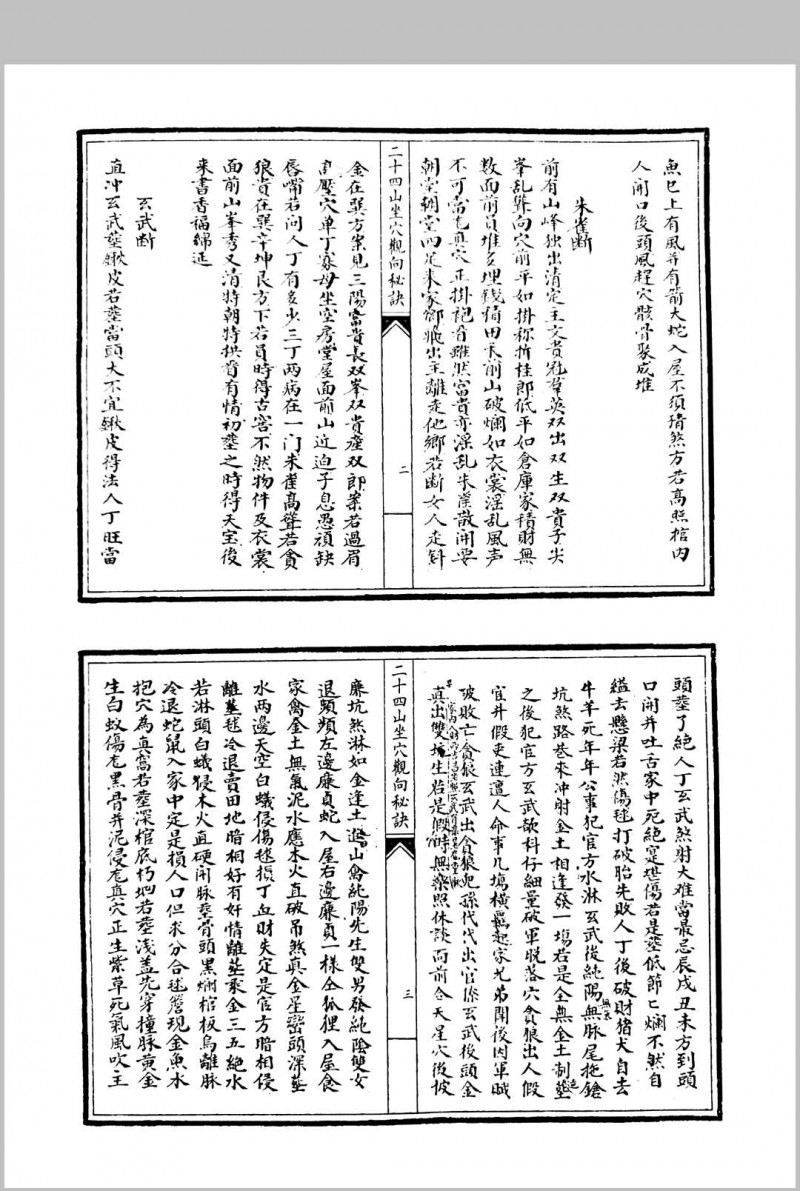 魚巳上有風并有箭大蛇入屋不須猜煞方若高照棺内
人開口後頭風趕穴骸骨聚成堆
朱雀断
前有山峰独出清定主文貴冠羣英双出双生双貴子尖
峯乱聳向穴前平如掛称折桂郎低平如倉庫家積財無
数面前貟堆多埋銭積田禾前山破爛如衣裳淫乱風声
不可當左真穴正掛袍肩雖然富貴亦淫乱朱雀散開要
朝堂朝堂四足朱家鄉飛出主離走他鄉若断女人走斜
二十四山坐穴觀向秘訣
二
金在巽方案見三陽富貴長双峯双貴産双郎案若過眉
高壓穴单丁寡母坐空房堂屋面前山近迫子息愚頑缺
唇嘴若问人丁有多少三丁两病在一门朱雀高聳若貪
狼貴在巽辛坤艮方下若員時得古窖不然物件及衣裳
面前山峯秀又清特朝特拱有情初塟之時得天宝後
来書香福綿延
玄武断
直冲玄武塟鍬皮若塟當頭大不宜鍬皮得法人丁旺當
頭塟了絶人丁玄武煞射大难當最忌辰戌丑未方到頭
口開并吐舌家中死絶寔堪傷若是塟低節匕爛不然自
縊去懸梁若然傷毬打破胎先敗人丁後破財猪犬自去
牛羊死年年公事犯官方水淋玄武後純陽無脉尾拖鎗
坑煞路巷来冲射金土相逢發一塲若是全無金土制塟
之後犯官方玄武欹斜仔細量破軍脱落穴貪狼出人假
官并假吏連遭人命事几塲横羅起家兄弟閗後因軍賊
破敗亡貪狼玄武出貪狼兒孫代代出官偨玄武後頭金
真出雙墳生若是假時無藥照休談面前合天星穴後披
二十四山坐穴觀向秘訣
三
廉坑煞淋如金逢土逃山禽純陽先生雙男發純陰雙女
退頭頻左邊廉貞蛇入屋右邊廉貞一樣仝狐狸入屋食
家禽金土無氣泥水應木火直破吊煞真金星巒頭深塟
水两邊天空白蟻侵傷毬損丁血財失定是官方暗相侵
離塟毬冷退賣田地暗相好有奸情離塟乘金三五絶水
若淋頭白蟻侵木火直硬閗脉塟骨頭黑爛棺板烏離脉
冷退蛇鼠入家中定是損人口但求分合毬簷現金魚水
抱穴為真窩若塟深棺底朽坭若塟浅盖先穿撞脉黄金
生白蚁傷左黑骨并泥侵左真穴正生紫草死氣風吹主